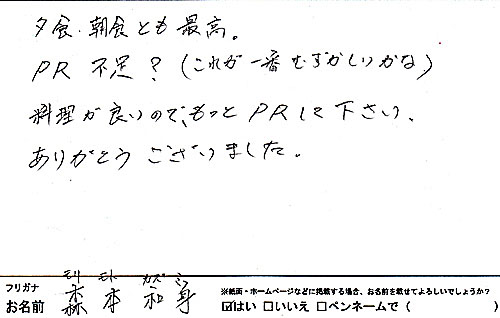 夕食、朝食とも最高。
PR不足?(これが一番むずかしいかな)
料理が良いので、もっとPRして下さい、
ありがとうございました。
フリガナ モリ モト カズ ミ
お名前 森本和身
※紙面・ホームページなどに掲載する場合、お名前を載せてよろしいでしょうか?
☑はい □いいえ □ペンネームで( )